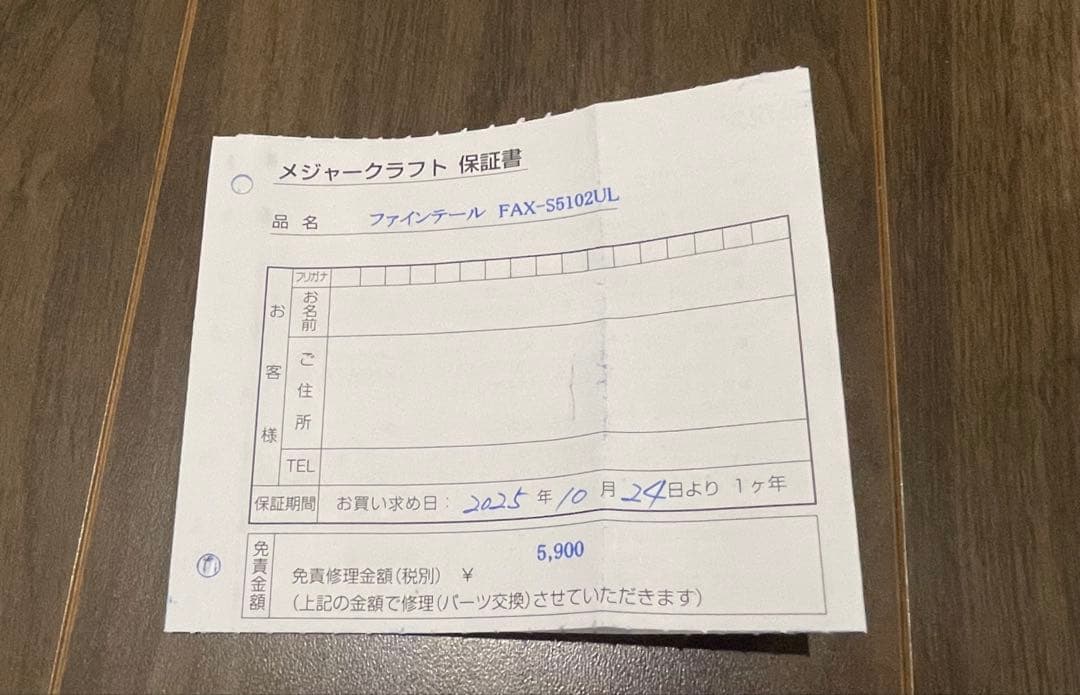 メジャークラフト 保証書
品名 ファインテール FAX-S5102UL
お客様
フリガナ
お名前
ご住所
TEL
保証期間 お買い求め日: 2025年10月24日より 1ヶ年
免責金額
5,900
免責修理金額(税別) ¥
(上記の金額で修理(パーツ交換)させていただきます)